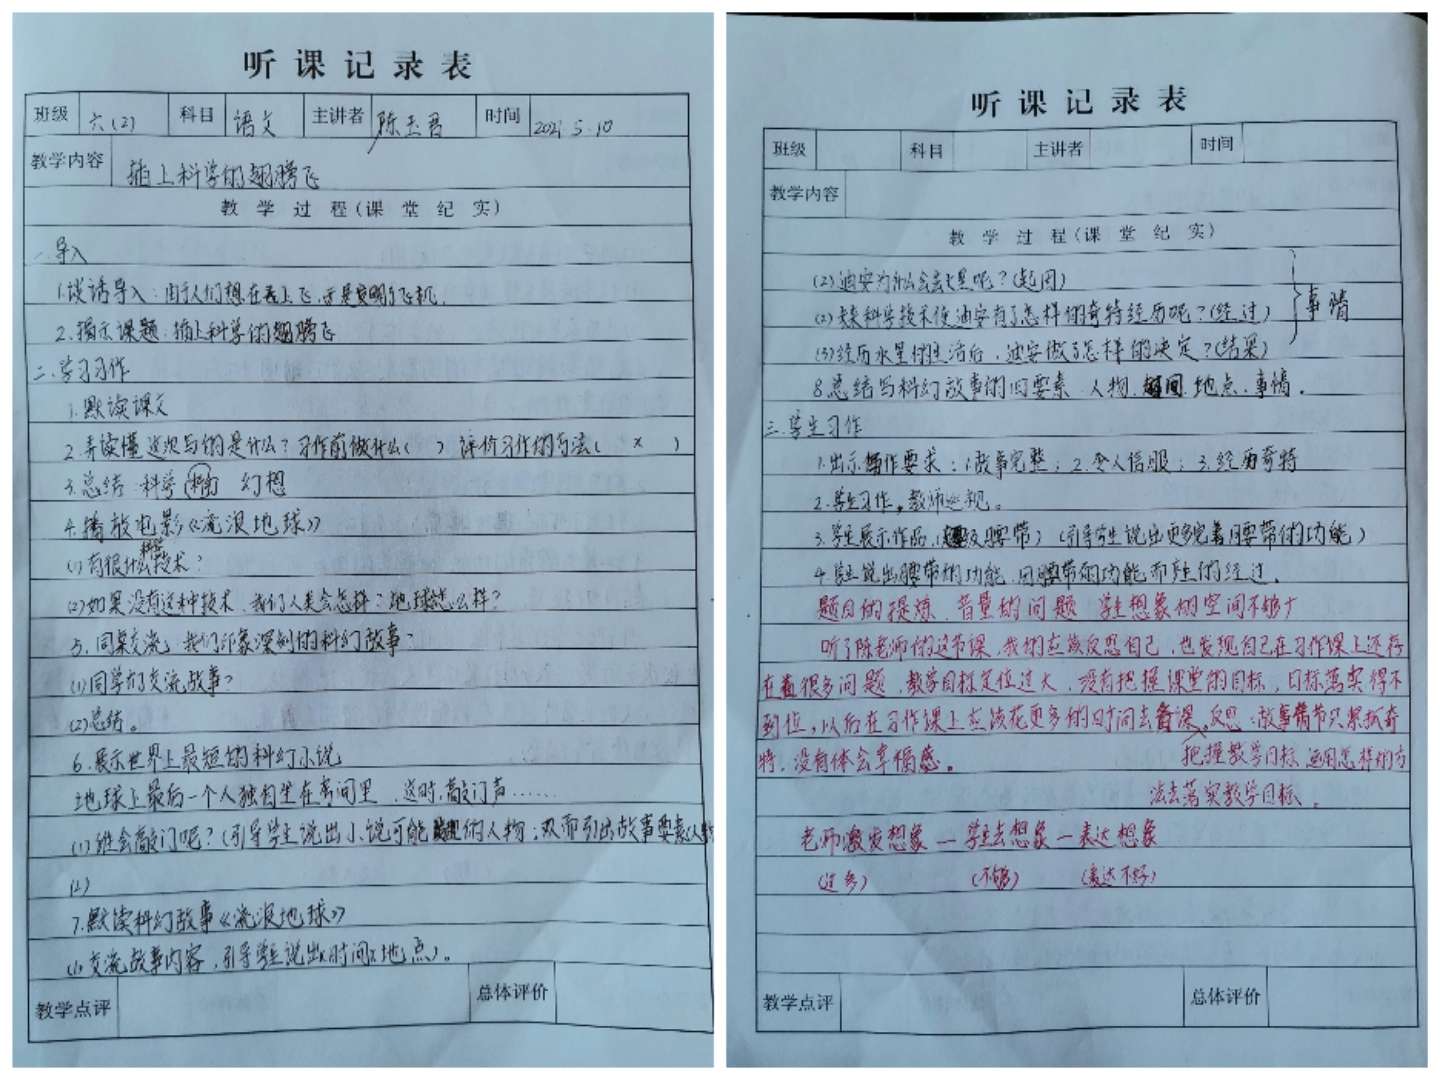 听课记录表
班级 六(2) 科目 语文 主讲者 陈玉君 时间 2021 5.10
教学内容 插上科学的翅膀飞
教学过程(课堂纪实)
一.导入
1.谈话导入:由于人们想在天上飞,于是发明了飞机.
2.揭示课题:插上科学的翅膀飞
二.学习习作
1.默读课文
2.弄读懂这次写的是什么?习作前做什么( ) 评价习作的方法( × )
3.总结:科学 幻想
4.播放电影《流浪地球》
(1)有很什么科学技术?
(2)如果没有这种技术,我们人类会怎样?地球怎么样?
5.同桌交流:我们印象深刻的科幻故事?
(1)同学们交流故事?
(2)总结。
6.展示世界上最短的科幻小说
地球上最后一个人独自坐在房间里,这时,敲门声……
(1)谁会敲门呢?(引导学生说出小说可能的人物;从而引出故事要素(人物
(2)
7.默读科幻故事《流浪地球》
(1)交流故事内容,引导学生说出(时间、地点)。
教学点评 总体评价
听课记录表
班级 科目 主讲者 时间
教学内容
教学过程(课堂纪实)
(2)迪安为什么会去火星呢?(起因)
(2)未来科学技术使迪安有了怎样的奇特经历呢?(经过)
事情
(3)经历水星的生活后,迪安做了怎样的决定?(结果)
8.总结写科幻故事的四要素:人物.时间.地点.事情.
三.学生习作
1.出示操作要求:1.故事完整;2.令人信服;3.经历奇特
2.学生习作,教师巡视。
3.学生展示作品.(超级腰带)(引导学生说出更多完善腰带的功能)
4.学生说出腰带的功能,因腰带的功能而产生的经过.
题目的操炼、音量的问题 学生想象的空间不够广
听了陈老师的这节课,我们应该反思自己,也发现自己在习作课上还存
在着很多问题,教学目标定位过大,没有把握课堂的目标,目标落实得不
到位,以后在习作课上应该花更多的时间去备课.反思:故事情节只累抓奇
特,没有体会幸福感。 把握教学目标,运用怎样的方
法去落实教学目标.
老师激发想象—学生去想象—表达想象
(过多) (不够) (表达不好)
教学点评 总体评价